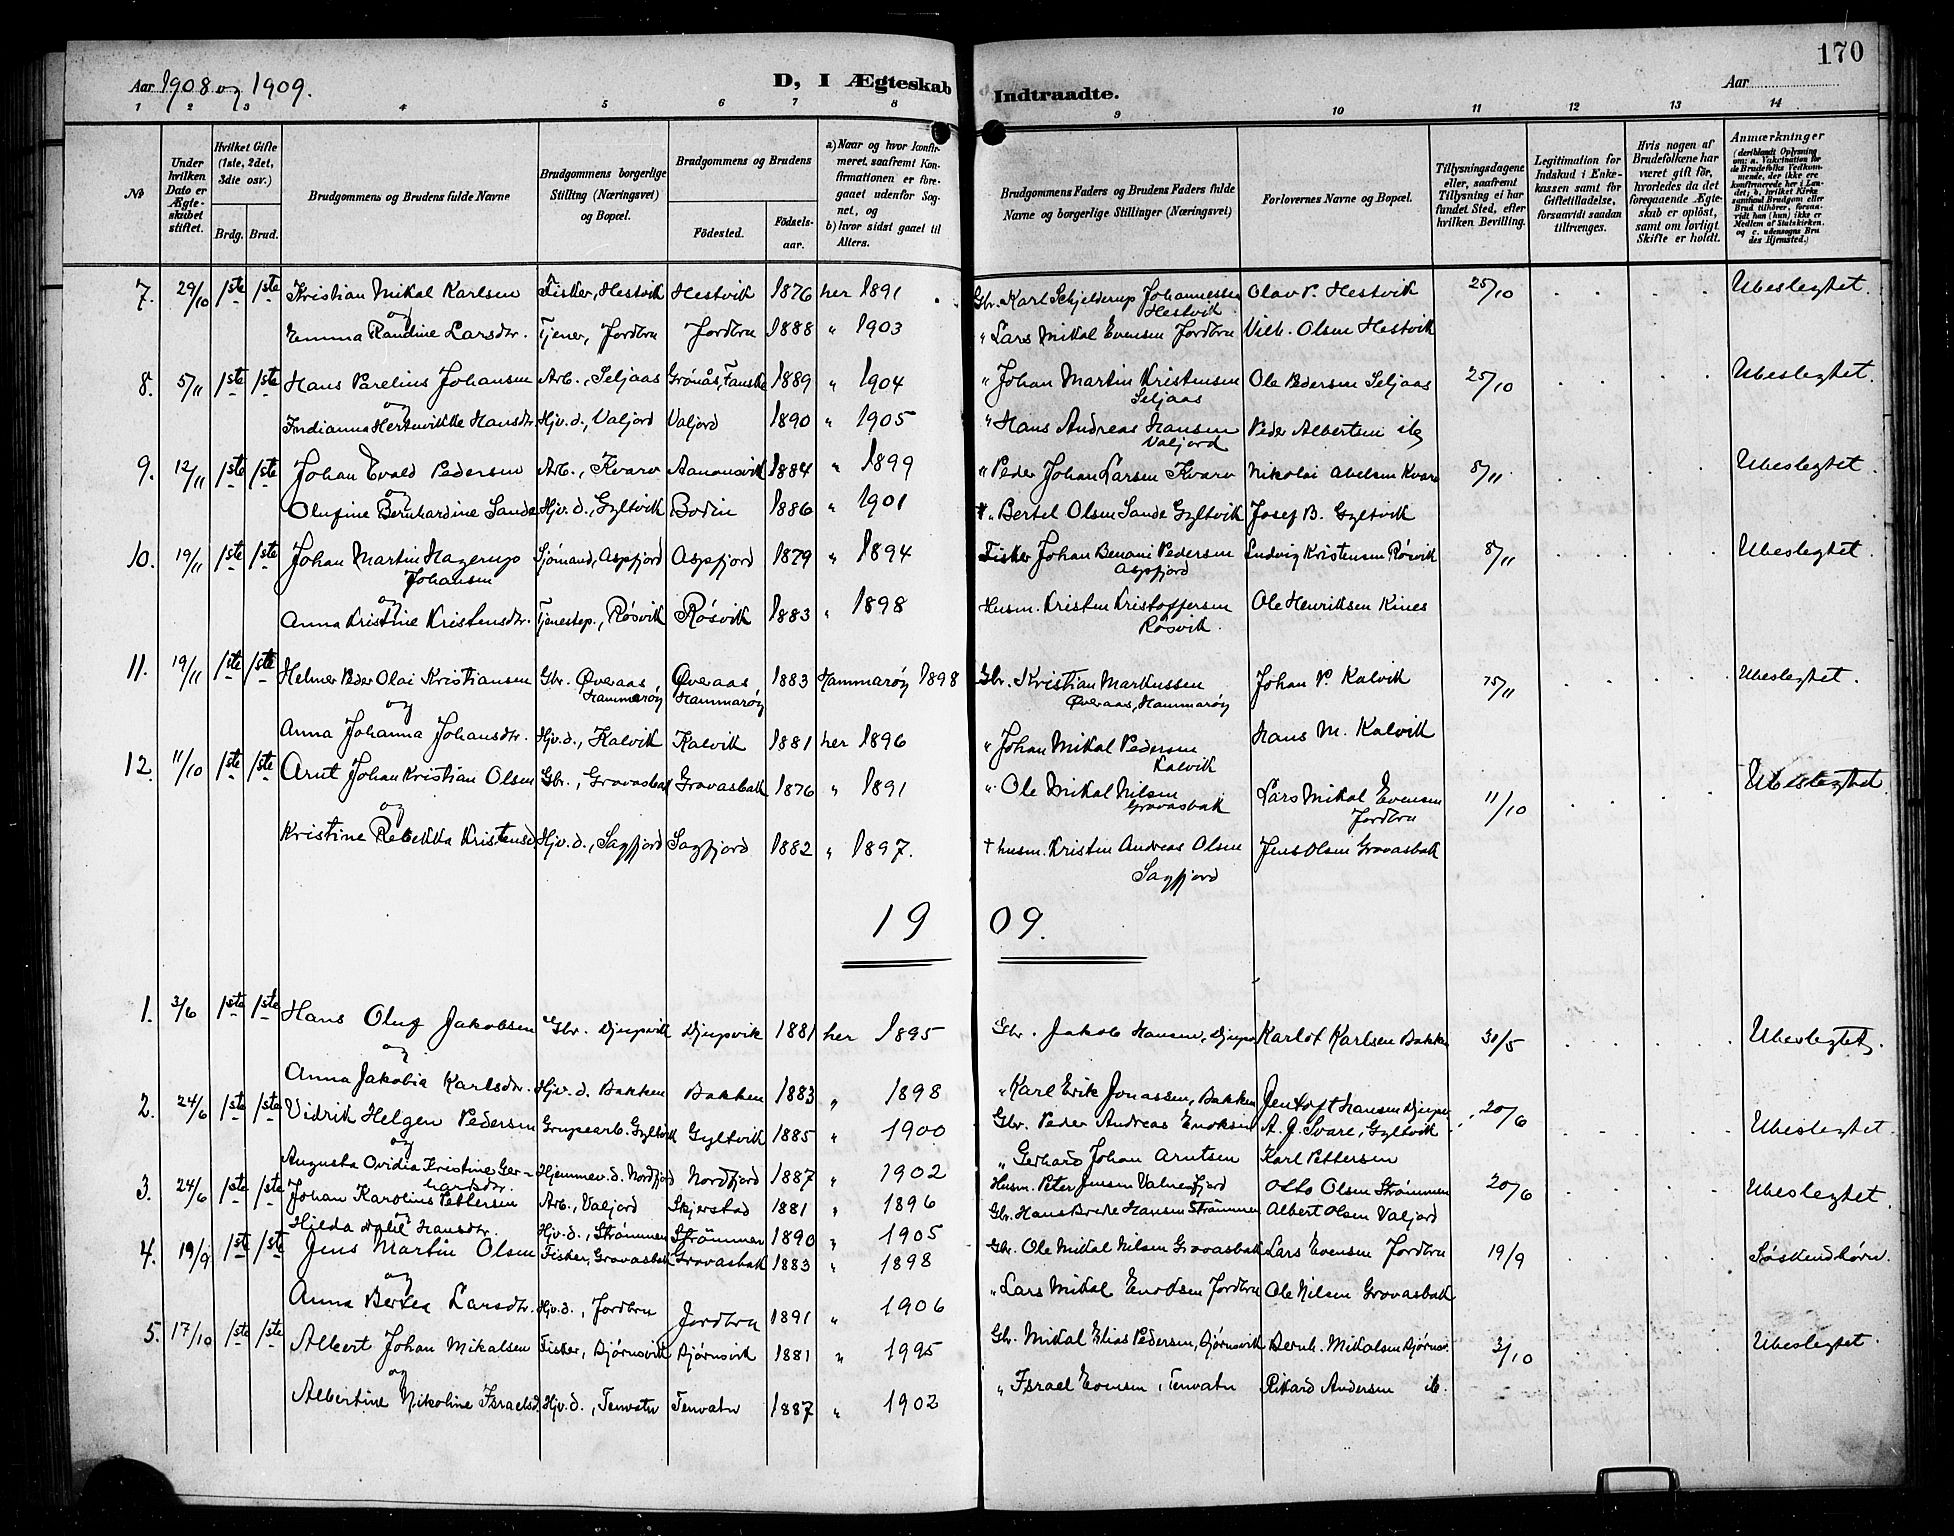 170
Aar 1908 og 1909.
D, I Ægteskab Indtraadte.
Aar
1 2 3 4 5 6 7 8 9 10 11 12 13 14
No
Under hvilken Dato er Ægteskabet stiftet.
Hvilket Gifte (1ste, 2det, 3die osv.)
Brdg. Brud.
Brudgommens og Brudens fulde Navne
Brudgommens borgerlige Stilling (Næringsvei) og Bopæl.
Brudgommens og Brudens
Födested.
Födselsaar.
a) Naar og hvor konfirmeret, saafremt Konfirmationen er foregaaet udenför Sognet, og
b) hvor sidst gaaet til Alters.
Brudgommens Faders og Brudens Faders fulde Navne og borgerlige Stillinger (Næringsvei)
Forlovernes Navne og Bopæl.
Tillysningsdagene eller, saafremt Tillysning ei har fundet Sted, efter hvilken Bevilling.
Legitimation for Indskud i Enkekassen samt for Giftetilladelse, forsaavidt saadan tiltrænges.
Hvis nogen af Brudefolkene har været gift för, hvorledes da det foregaaende Ægteskab er oplöst, samt om lovligt Skifte er holdt.
Anmærkninger
(deriblandt Oplysning om: a. Vakcination for de Brudefolks Vedkommende, der ikke ere konfirmerede her i Landet; b. hvilket Kirkesamfund Brudgom eller Brud tilhörer, forsaavidt han (hun) ikke er Medlem af Statskirken, og c. udensogns Brudes Hjemsted.)
7. 29/10 1ste 1ste Kristian Mikal Karlsen Fisker, Hestvik Hestvik 1876 her 1891 Gbr. Karl Schjelderup Johannessen Hestvik Olav P. Hestvik 25/10 Ubeslegtet.
og
Emma Randine Larsdtr. Tjener, Jordbru Jordbru 1888 " 1903 " Lars Mikal Evensen Jordbru Vilh. Olsen Hestvik
8. 5/11 1ste 1ste Hans Parelius Johansen Arb., Seljaas Grønås, Fauske 1889 " 1904 " Johan Martin Kristensen Seljaas Ole Pedersen Seljaas 25/10 Ubeslegtet.
og
Indianna Hertuvikke Hansdtr. Hjv. d., Valjord Valjord 1890 " 1905 " Hans Andreas Hansen Valjord Peder Albertsen ib
9. 12/11 1ste 1ste Johan Evald Pedersen Arb., Kvarv Aanonsvik 1884 " 1899 " Peder Johan Larsen Kvarv Nikolai Abelsen Kvarv 8/11. Ubeslegtet.
og
Olufine Bernhardine Sande Hjv. d., Gyltvik Bodin 1886 " 1901 " Bertel Olsen Sande Gyltvik Josef B. Gyltvik
10. 19/11 1ste 1ste Johan Martin Hagerup Johansen Sjømand, Aspfjord Aspfjord 1879 " 1894 Fisker Johan Benoni Pedersen Aspfjord Ludvig Kristensen Røsvik 8/11 Ubeslegtet.
og
Anna Kristine Kristensdtr. Tjenestep., Røsvik Røsvik 1883 " 1898 Husm. Kristen Kristoffersen Røsvik. Ole Henriksen Kines
11. 19/11 1ste 1ste Helmer Peder Olai Kristiansen Gbr. Øveraas Hammarøy Øveraas Hammarøy 1883 Hammarøy 1898 Gbr. Kristian Markussen Øveraas, Hammarøy Johan P. Kalvik 15/11 Ubeslegtet.
og
Anna Johanna Johansdtr. Hjv. d., Kalvik Kalvik 1881 her 1896 " Johan Mikal Pedersen Kalvik Hans M. Kalvik
12. 11/10 1ste 1ste Arnt Johan Kristian Olsen Gbr., Grovasbak Grovasbak 1876 " 1891 " Ole Mikal Nilsen Grovasbak Lars Mikal Evensen Jordbru 11/10 Ubeslegtet
og
Kristine Rebekka Kristensd. Hjv. d., Sagfjord Sagfjord 1882 " 1897. † husm. Kristen Andreas Olsen Sagfjord Jens Olsen Grovasbak
1909.
1. 3/6 1ste 1ste Hans Oluf Jakobsen Gbr. Djupvik Djupvik 1881 her 1895 Gbr. Jakob Hansen, Djupv Karlot Karlsen Bakken 30/5 Ubeslegtet.
og
Anna Jakobia Karlsdtr. Hjv. d. Bakken Bakken 1883 " 1898 " Karl Erik Jonassen, Bakken Jentoft Hansen Djupv
2. 24/6 1ste 1ste Vidrik Helgen Pedersen Grupearb. Gyltvik Gyltvik 1885 " 1900 Gbr. Peder Andreas Enoksen A. J. Svare, Gyltvik 20/6 Ubeslegtet.
og
Augusta Ovidia Kristine Gerhardsdtr. Hjemmev. d. Nordfjord Nordfjord 1887 " 1902 " Gerhard Johan Arntsen Karl Pettersen
3. 24/6 1ste 1ste Johan Karolius Pettersen Arb., Valjord Skjerstad 1881 " 1896 Husm. Peter Jensen Valnesfjord Otto Olsen Strømmen 20/6 Ubeslegtet.
og
Hilda Hansdtr. Hjv. d., Strømmen Strømmen 1890 " 1905 Gbr. Hans Brede Hansen Strømmen Albert Olsen Valjord
4. 19/9 1ste 1ste Jens Martin Olsen Fisker, Grovasbak Grovasbak 1883 " 1898 Gbr. Ole Mikal Nilsen Grovasbak Lars Evensen Jordbru 19/9 Søskendbørn.
og
Anna Berkea Larsdtr. Hjv. d., Jordbru Jordbru 1891 " 1906 " Lars Mikal Evensen Jordbru Ole Nilsen Grovasbak
5. 17/10 1ste 1ste Albert Johan Mikalsen Fisker, Bjørnsvik Bjørnsvik 1881 " 1995 Gbr. Mikal Elias Pedersen, Bjørnsvik Bernh. Mikalsen Bjørnsv. 3/10 Ubeslegtet.
og
Albertine Nikoline Israelsd. Hjv. d., Tenvatn Tenvatn 1887 " 1902 " Israel Evensen, Tenvatn Rikard Andersen ib.